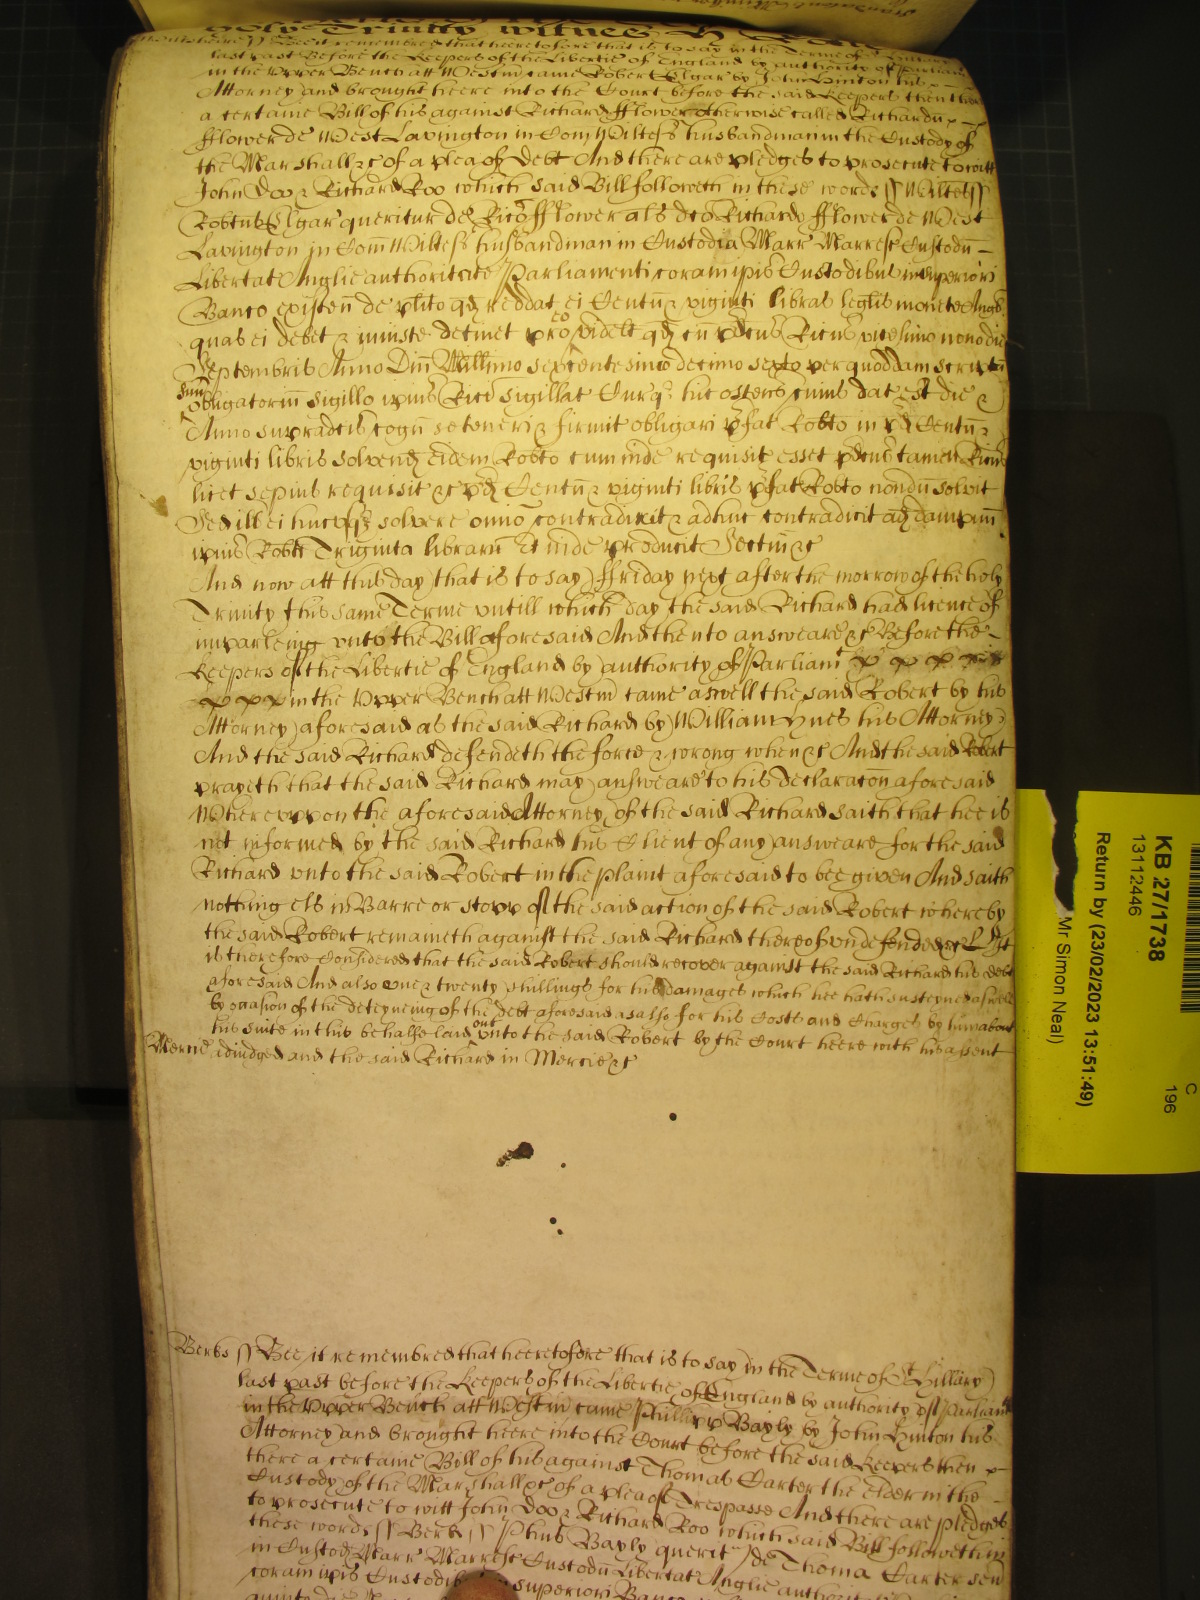 Holy Trinity Witnes H
Bee it remembred that heeretofore that is to say in the Terme of St Hillary
last past Before the Keepers of the Libertie of England by authority of Parliamt
in the Upper Bench att Westm came Robert Elgar by John Hinton his
Attorney and brought heere into the Court before the said Keepers then there
a certaine Bill of his against Richard fflower otherwise called Richardu
fflower de West Lavington in Com Wiltess husbandman in the Custody of
the Marshall &c of a plea of Debt And there are pledges to prosecute to witt
John Doo & Richard Roo which said Bill followeth in these words ss Wiltess ss
Robtus Elgar queritur de Rico fflower als dco Richardo fflower de West
Lavington in Com Wiltess husbandman in Custodia Marr Marresc Custodu
Libertat Anglie authoritate Parliamenti coram ipis Custodibus in superiori
Banco existen de plito qd reddat ei Centu & viginti libras leglis monete Angl
quas ei debet & iniuste detinet pro eo videlt qd cu pdcus Ricus vicesimo nono die
Septembris Anno Dni Millimo sexcentesimo decimo sexto per quoddam scriptu
suu obligatoriu sigillo ipius Rici sigillat Curq hic ostens cuius dat est die &
Anno supradcis cogn se teneri & firmit obligari pfat Robto in pd Centu &
viginti libris solvend eidem Robto cum inde requisit esset pdcus tamen Ricus
licet sepius requisit &c pd Centu & viginti libris pfat Robto nondu solvit
Sed ill ei hucusq solvere omio contradixit & adhuc contradicit ad dampnu
ipius Robti Triginta libraru Et inde producit Sectu &c
And now att this day that is to say ffriday next after the morrow of the holy
Trinity this same Terme untill which day the said Richard had licence of
imparleing unto the Bill aforesaid And then to answeare &c Before the
Keepers of the Libertie of England by authority of Parliamt
in the Upper Bench att Westm came aswell the said Robert by his
Attorney aforesaid as the said Richard by William Hnes his Attorney
And the said Richard defendeth the force & wrong when &c And the said Robert
prayeth that the said Richard may answeare to his declaracon aforesaid
Whereuppon the aforesaid Attorney of the said Richard saith that hee is
not informed by the said Richard his Client of any answeare for the said
Richard unto the said Robert in the plaint aforesaid to bee given And saith
nothing els in Barre or stopp of the said action of the said Robert whereby
the said Robert remaineth against the said Richard thereof undefended &c It
is therefore Considered that the said Robert should recover against the said Richard his debt
aforesaid And also one & twenty shillings for his damages which hee hath susteyned aswell
by occasion of the deteyneing of the debt aforesaid as also for his Costs and Charges by him about
his suite in this behalfe laid out unto the said Robert by the Court heere with his assent
Mercie adiudged and the said Richard in Mercie &c
Berks ss Bee it remembred that heeretofore that is to say in the Terme of St Hillary
last past before the Keepers of the Libertie of England by authority of Parliamt
in the Upper Bench att Westm came Phillipp Bayly by John Hinton his
Attorney and brought heere into the Court before the said Keepers then
there a certaine Bill of his against Thomas Carter the elder in the
Custody of the Marshall &c of a plea of Trespasse And there are pledges
to prosecute to witt John Doo & Richard Roo which said Bill followeth in
these words ss Berks ss Phus Bayly querit de Thoma Carter sen
in Custod Marr Marresc Custodu Libertat Anglie authoritat
coram ipis Custodib superiori Banco
KB 27/1738
13112446
Return by (23/02/2023 13:51:49)
Mr Simon Neal)
C
196